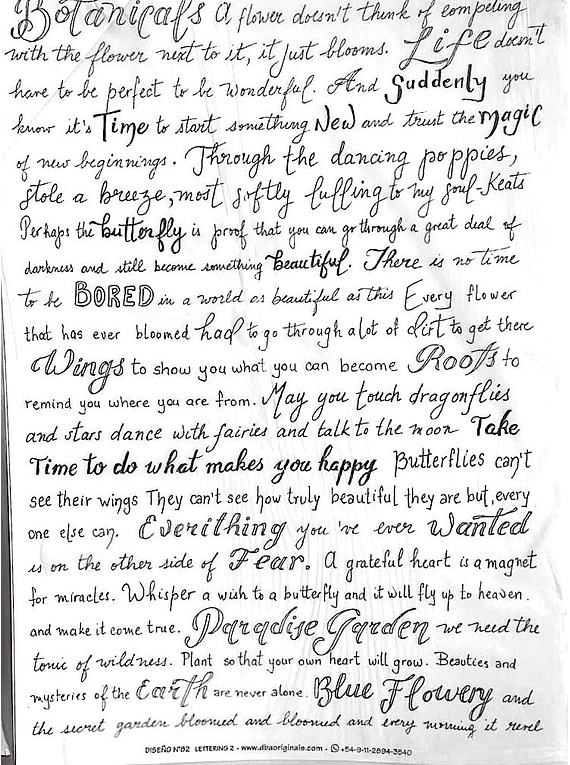 Botanicals A flower doesn't think of competing
with the flower next to it, it just blooms. Life doesn't
have to be perfect to be wonderful. And Suddenly you
know it's Time to start something New and trust the magic
of new beginnings. Through the dancing poppies,
stole a breeze, most softly lulling to my soul-Keats
Perhaps the butterfly is proof that you can go through a great deal of
darkness and still become something beautiful. There is no time
to be BORED in a world as beautiful as this Every flower
that has ever bloomed had to go through a lot of dirt to get there
Wings to show you what you can become Roots to
remind you where you are from. May you touch dragonflies
and stars dance with fairies and talk to the moon Take
Time to do what makes you happy Butterflies can't
see their wings They can't see how truly beautiful they are but, every
one else can. Everithing you 've ever Wanted
is on the other side of Fear. A grateful heart is a magnet
for miracles. Whisper a wish to a butterfly and it will fly up to heaven.
and make it come true. Paradise Garden we need the
tonic of wildness. Plant so that your own heart will grow. Beauties and
mysteries of the Earth are never alone. Blue Flowery and
the secret garden bloomed and bloomed and every morning it revel
DISEÑO N°82 LETTERING 2 - www.dbaoriginale.com - +54-9-11-2894-3540